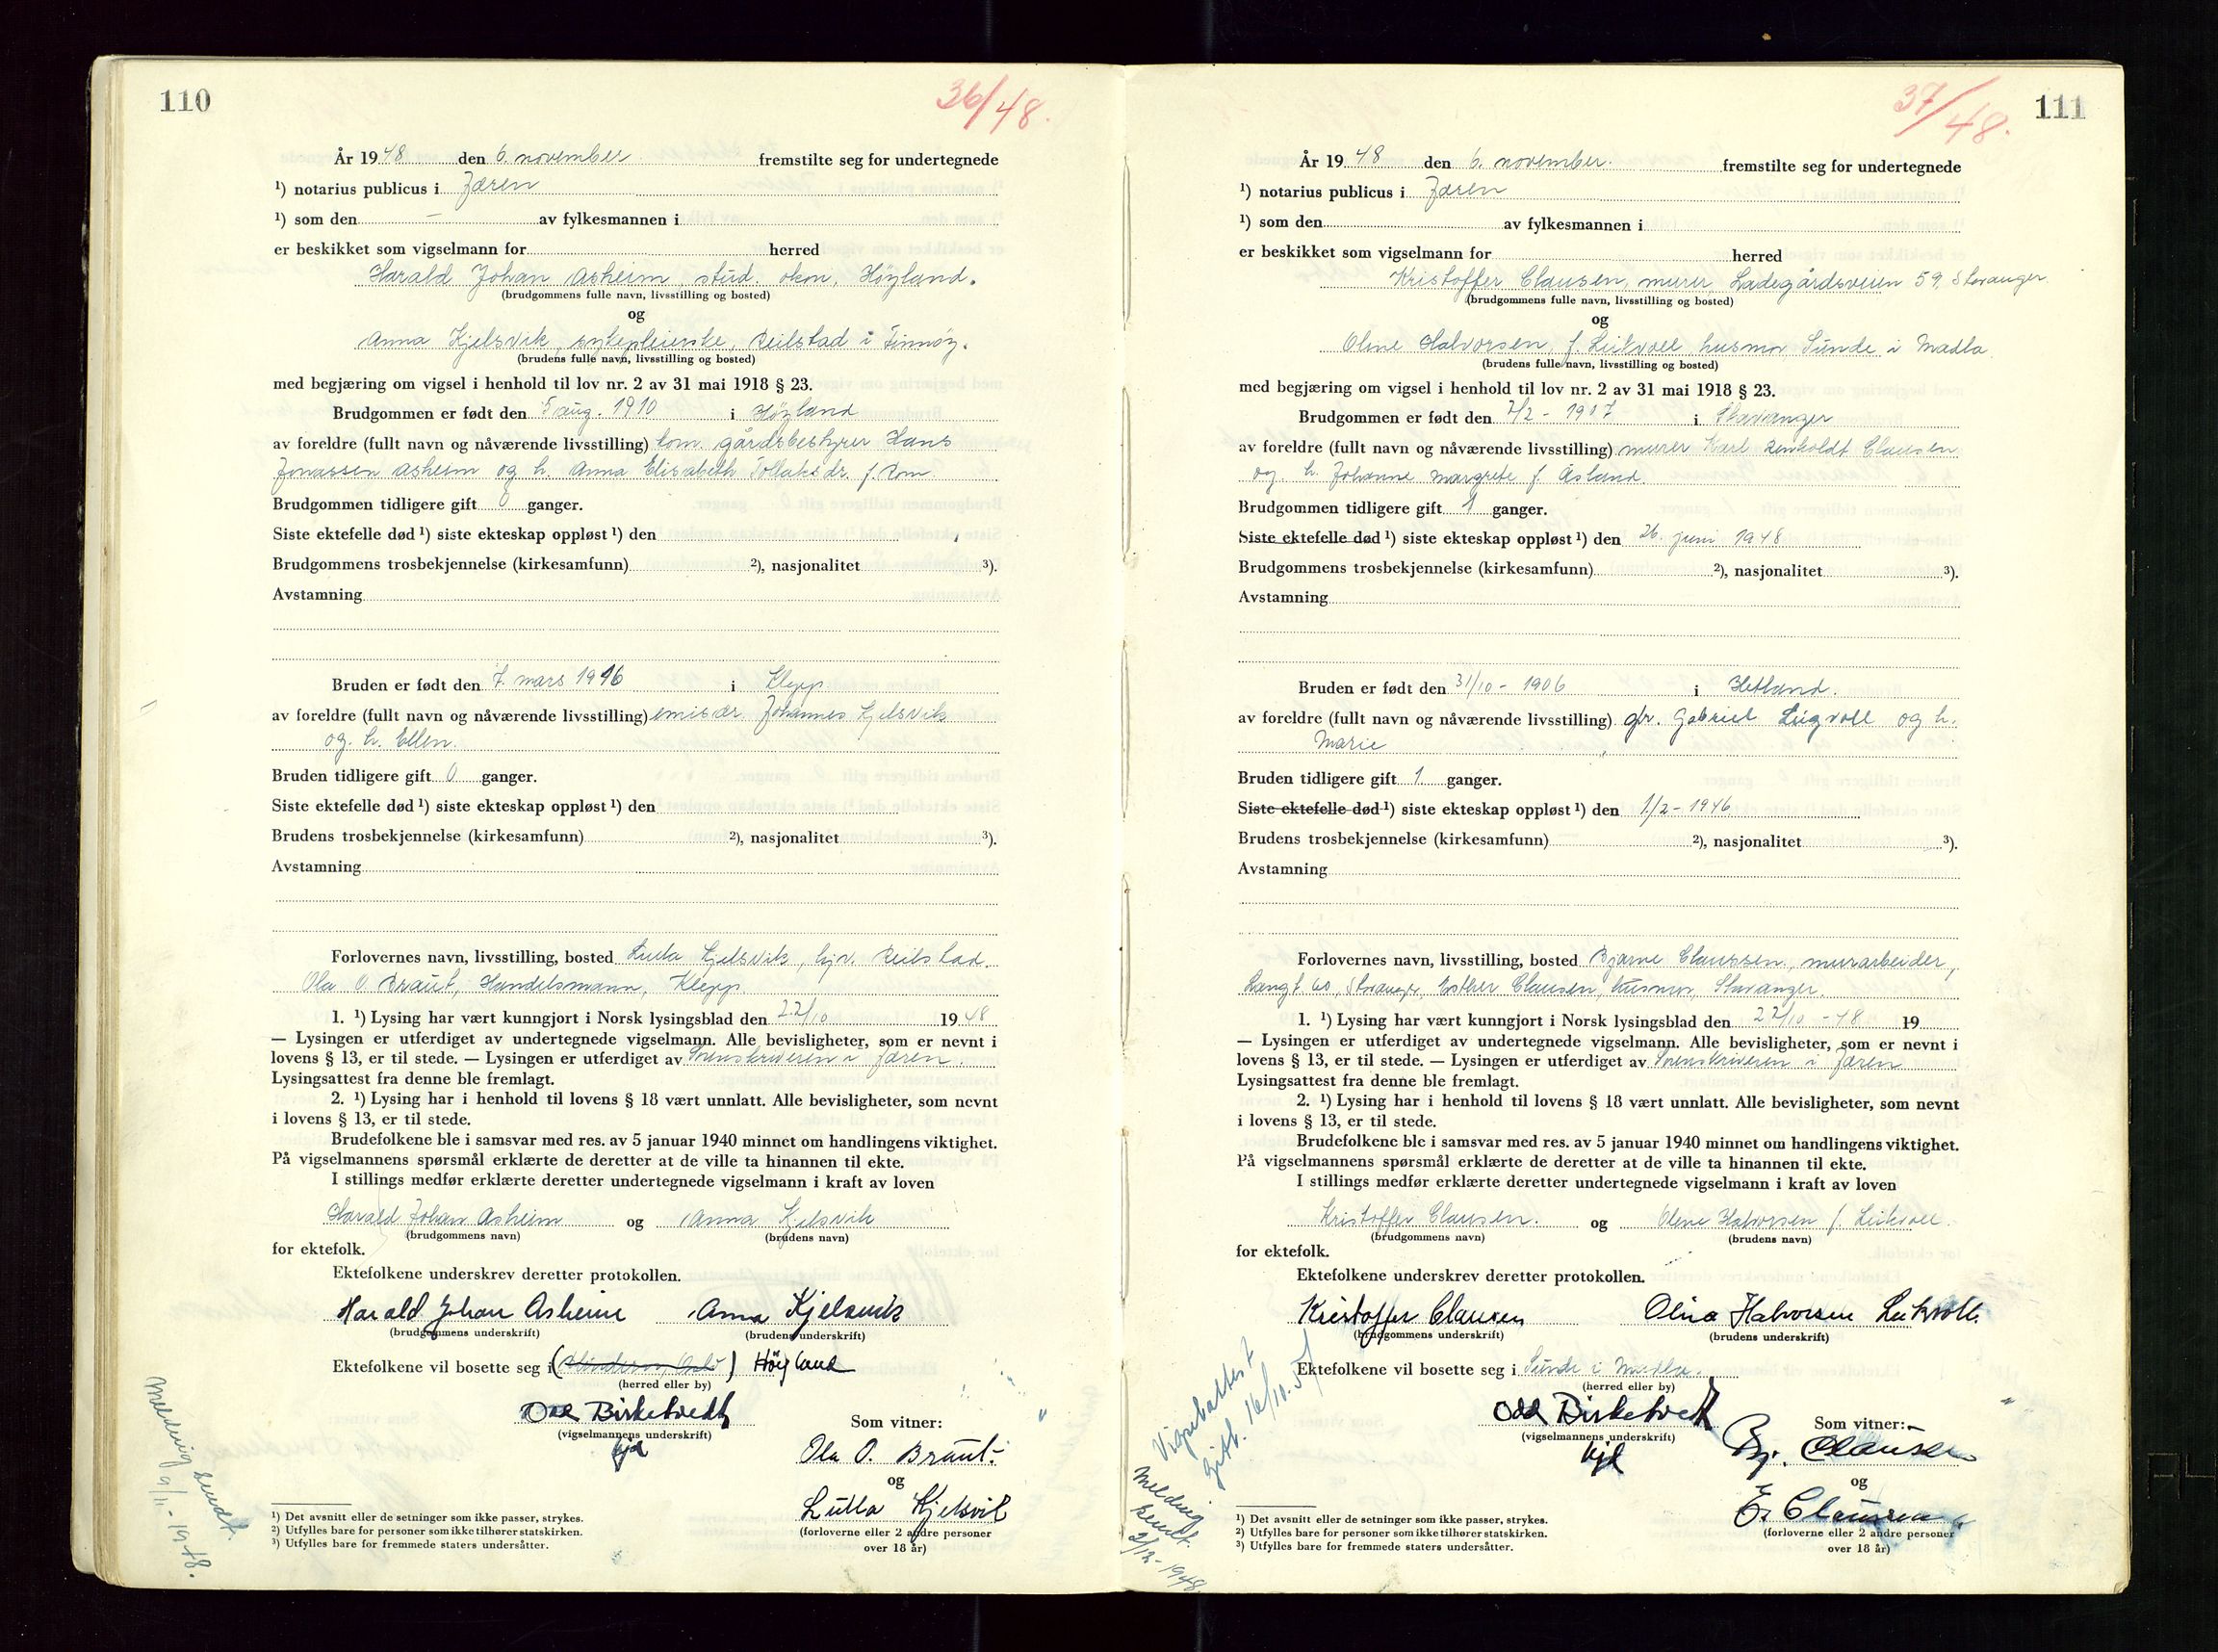 110
36/48.
År 1948 den 6. november fremstilte seg for undertegnede
¹) notarius publicus i Jæren
¹) som den – av fylkesmannen i
er beskikket som vigselmann for herred
Harald Johan Asheim, stud. økon, Höyland.
(brudgommens fulle navn, livsstilling og bosted)
og
Anna Kjelsvik, sykepleierske, Reilstad i Finnöy.
(brudens fulle navn, livsstilling og bosted)
med begjæring om vigsel i henhold til lov nr. 2 av 31 mai 1918 § 23.
Brudgommen er født den 5 aug. 1910 i Höyland
av foreldre (fullt navn og nåværende livsstilling) kom. gårdsbestyrer Hans
Jonassen Asheim og h. Anna Elisabeth Tollaksdr. f. Rom
Brudgommen tidligere gift 0 ganger.
Siste ektefelle død ¹) siste ekteskap oppløst ¹) den
Brudgommens trosbekjennelse (kirkesamfunn) ²), nasjonalitet ³).
Avstamning
Bruden er født den 7. mars 1916 i Klepp
av foreldre (fullt navn og nåværende livsstilling) emisær Johannes Kjelsvik
og h. Ellen.
Bruden tidligere gift 0 ganger.
Siste ektefelle død ¹) siste ekteskap oppløst ¹) den
Brudens trosbekjennelse (kirkesamfunn) ²), nasjonalitet ³).
Avstamning
Forlovernes navn, livsstilling, bosted Lulla Kjelsvik, Reilstad.
Ola O. Braut, Handelsmann, Klepp.
1. ¹) Lysing har vært kunngjort i Norsk lysingsblad den 22/10 1948
— Lysingen er utferdiget av undertegnede vigselmann. Alle bevisligheter, som er nevnt i
lovens § 13, er til stede. — Lysingen er utferdiget av Sorenskriveren i Jæren.
Lysingsattest fra denne ble fremlagt.
2. ¹) Lysing har i henhold til lovens § 18 vært unnlatt. Alle bevisligheter, som nevnt
i lovens § 13, er til stede.
Brudefolkene ble i samsvar med res. av 5 januar 1940 minnet om handlingens viktighet.
På vigselmannens spørsmål erklærte de deretter at de ville ta hinannen til ekte.
I stillings medfør erklærte deretter undertegnede vigselmann i kraft av loven
Harald Johan Asheim og Anna Kjelsvik
(brudgommens navn) (brudens navn)
for ektefolk.
Ektefolkene underskrev deretter protokollen.
Harald Johan Asheim Anna Kjelsvik
(brudgommens underskrift) (brudens underskrift)
Ektefolkene vil bosette seg i ( ) Höyland
(herred eller by)
Odd Birketvedt
(vigselmannens underskrift)
kjd
Som vitner:
Ola O. Braut.
og
Lulla Kjelsvik
(forloverne eller 2 andre personer
over 18 år)
¹) Det avsnitt eller de setninger som ikke passer, strykes.
²) Utfylles bare for personer som ikke tilhører statskirken.
³) Utfylles bare for fremmede staters undersåtter.
Melding sendt
9/11-1948.
37/48.
111
År 1948 den 6. november. fremstilte seg for undertegnede
¹) notarius publicus i Jæren
¹) som den av fylkesmannen i
er beskikket som vigselmann for herred
Kristoffer Clausen, murer, Ladegårdsveien 59, Stavanger
(brudgommens fulle navn, livsstilling og bosted)
og
Oline Halvorsen, f. Leikvoll husmor Sunde i Madla
(brudens fulle navn, livsstilling og bosted)
med begjæring om vigsel i henhold til lov nr. 2 av 31 mai 1918 § 23.
Brudgommen er født den 7/2 - 1907 i Stavanger
av foreldre (fullt navn og nåværende livsstilling) murer Karl Reinholdt Clausen
og h. Johanne Margrete f. Åsland.
Brudgommen tidligere gift 1 ganger.
Siste ektefelle død ¹) siste ekteskap oppløst ¹) den 26. juni 1948
Brudgommens trosbekjennelse (kirkesamfunn) ²), nasjonalitet ³).
Avstamning
Bruden er født den 31/10 - 1906 i Hetland.
av foreldre (fullt navn og nåværende livsstilling) gbr. Gabriel Leigvoll og h.
Marie
Bruden tidligere gift 1 ganger.
Siste ektefelle død ¹) siste ekteskap oppløst ¹) den 1/2 - 1946
Brudens trosbekjennelse (kirkesamfunn) ²), nasjonalitet ³).
Avstamning
Forlovernes navn, livsstilling, bosted Bjarne Claussen, murarbeider,
Langt. 60, Stavanger, Esther Clausen, husmor, Stavanger.
1. ¹) Lysing har vært kunngjort i Norsk lysingsblad den 22/10 - 48 19
— Lysingen er utferdiget av undertegnede vigselmann. Alle bevisligheter, som er nevnt i
lovens § 13, er til stede. — Lysingen er utferdiget av Sorenskriveren i Jæren
Lysingsattest fra denne ble fremlagt.
2. ¹) Lysing har i henhold til lovens § 18 vært unnlatt. Alle bevisligheter, som nevnt
i lovens § 13, er til stede.
Brudefolkene ble i samsvar med res. av 5 januar 1940 minnet om handlingens viktighet.
På vigselmannens spørsmål erklærte de deretter at de ville ta hinannen til ekte.
I stillings medfør erklærte deretter undertegnede vigselmann i kraft av loven
Kristoffer Clausen. og Oline Halvorsen f. Leikvoll.
(brudgommens navn) (brudens navn)
for ektefolk.
Ektefolkene underskrev deretter protokollen.
Kristoffer Clausen Olina Halvorsen Leikvoll.
(brudgommens underskrift) (brudens underskrift)
Ektefolkene vil bosette seg i Sunde i Madla.
(herred eller by)
Odd Birketvedt
(vigselmannens underskrift)
kjd
Som vitner:
Bj. Clausen
og
E. Claussen
(forloverne eller 2 andre personer
over 18 år)
¹) Det avsnitt eller de setninger som ikke passer, strykes.
²) Utfylles bare for personer som ikke tilhører statskirken.
³) Utfylles bare for fremmede staters undersåtter.
Vigselattest
gitt. 16/10.51
Melding
sendt.
2/12-1948